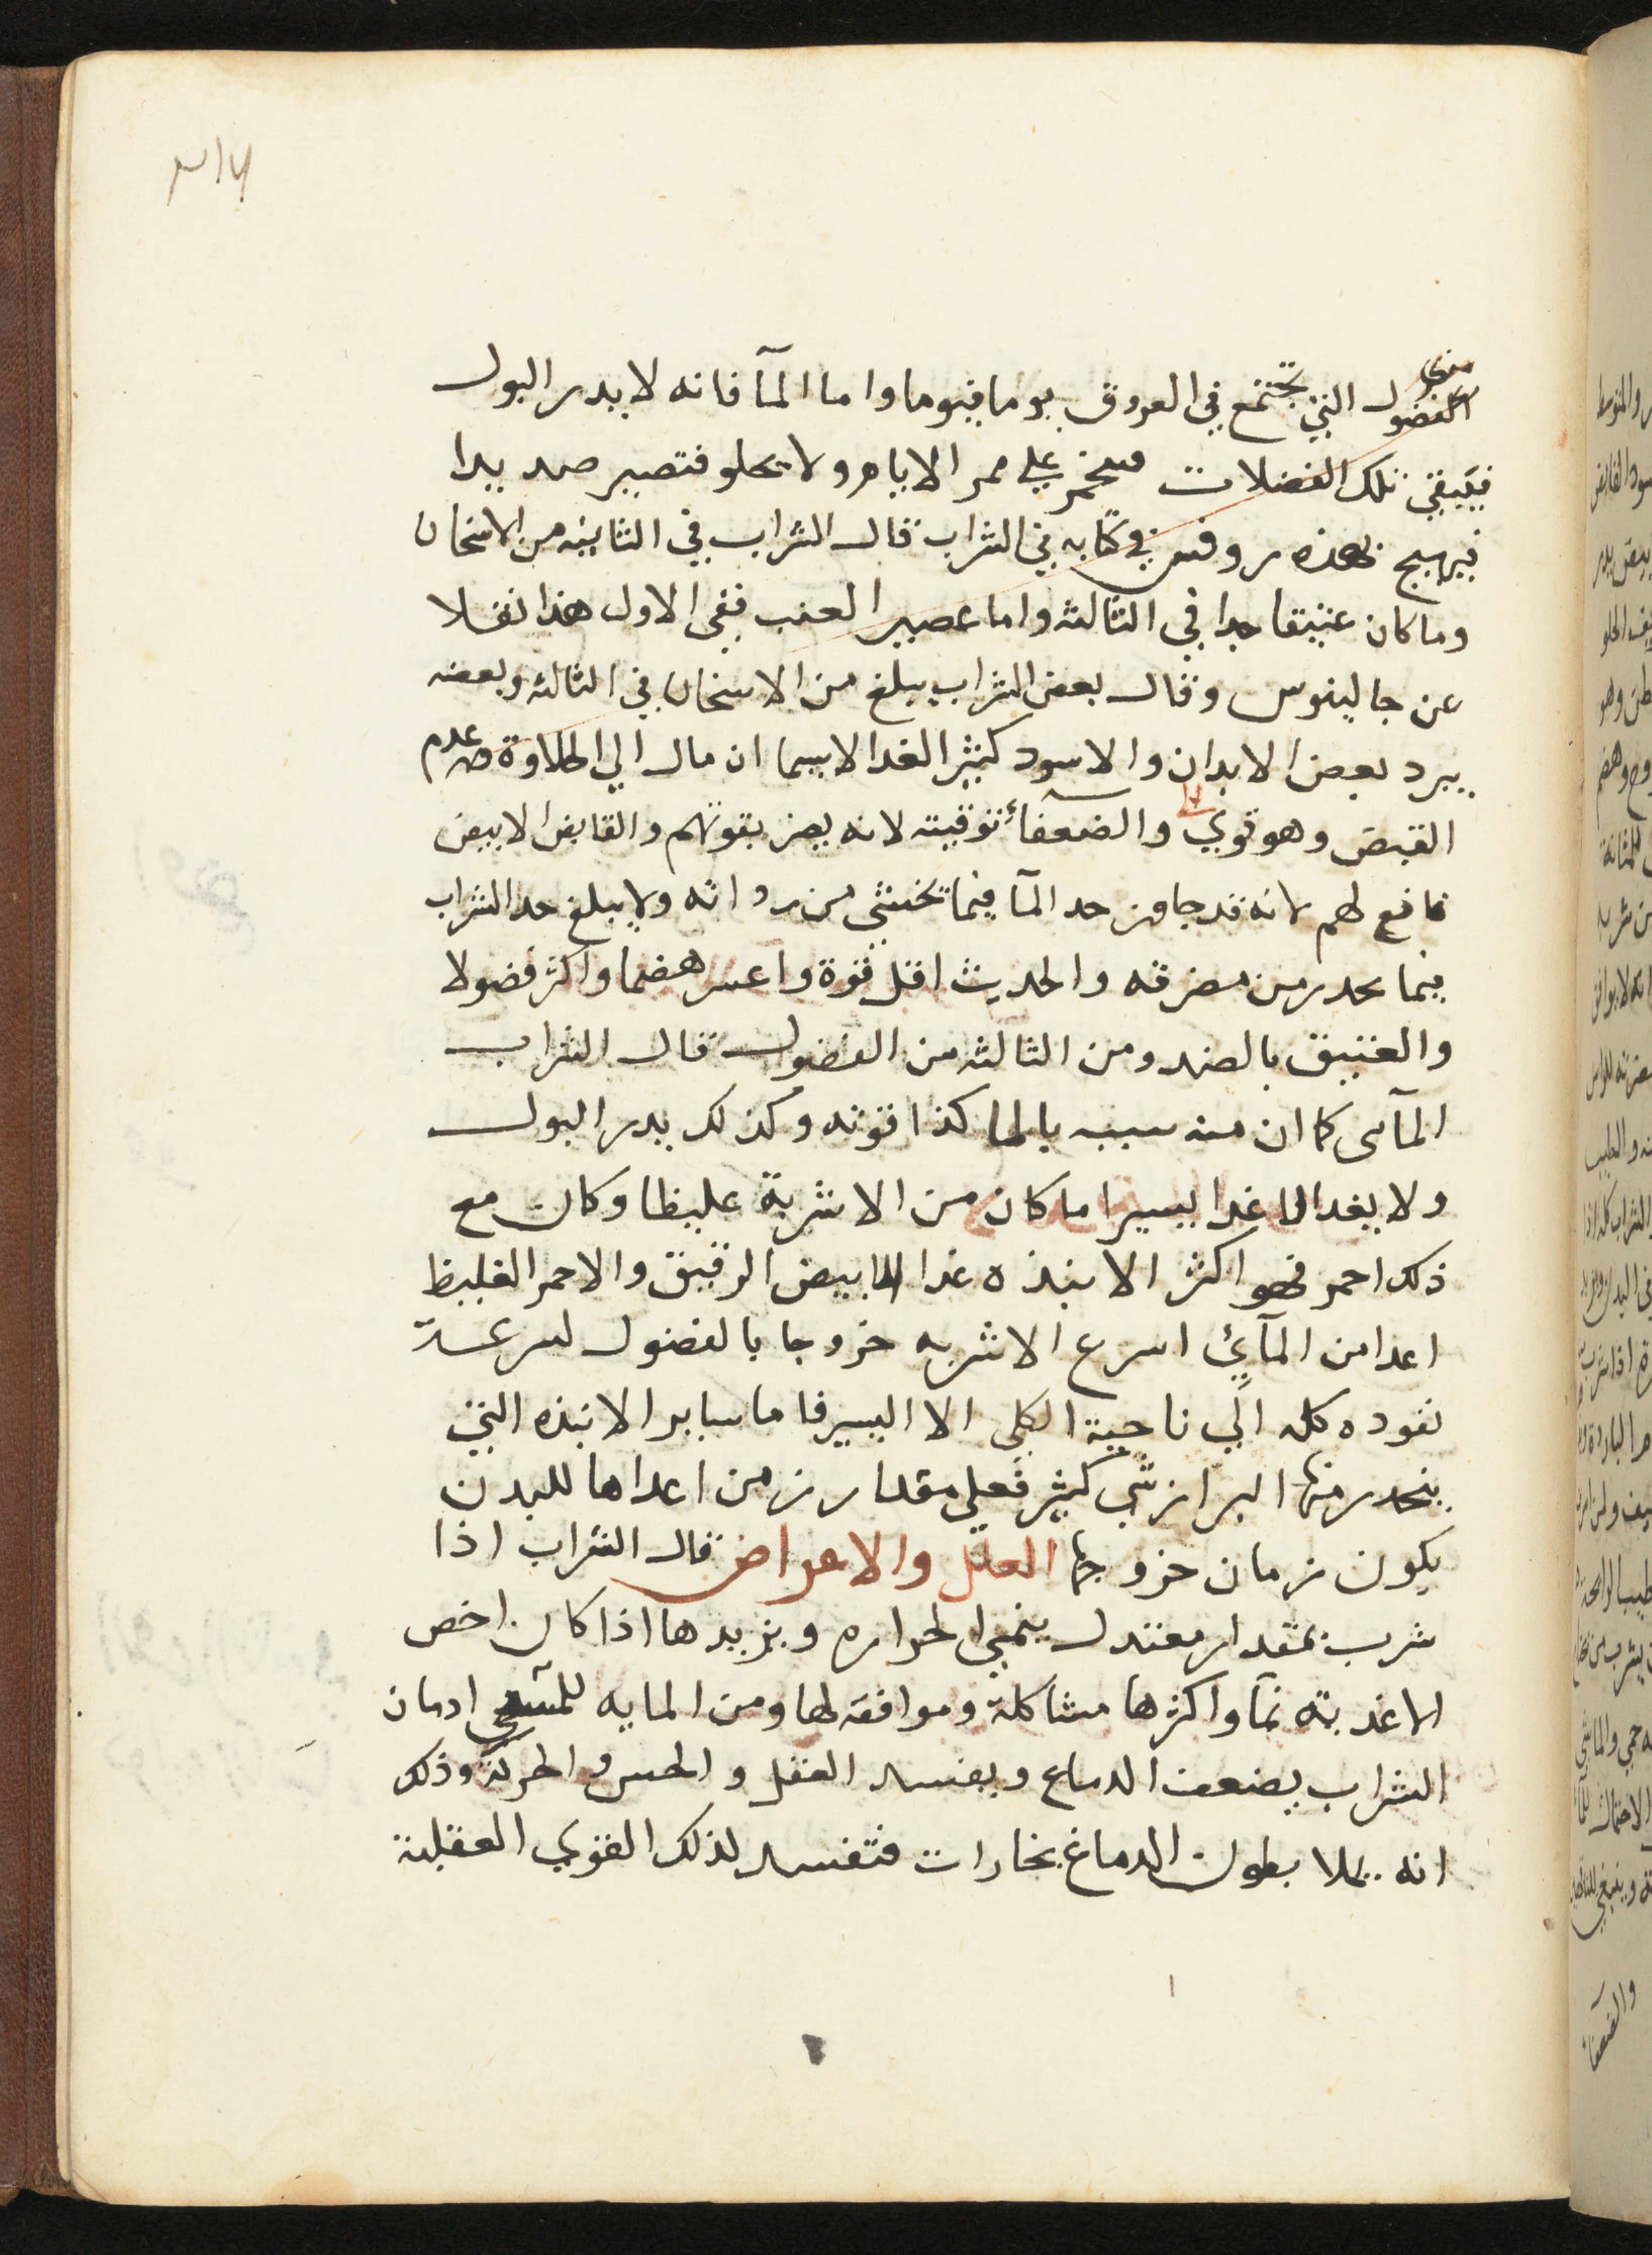 ٣١٧
الفضول التي تجتمع في العروق يوما فيوما واما المآ فانه لا يدر البول
فيبقي تلك الفضلات علي ممر الايام ولا يحلو فتصير صديدا
فيهيج بهذه روفس في كتابه في الشراب قال الشراب في الثانيه من الاسخان
وما كان عتيقا جدا في الثالثه واما عصير العنب ففي الاول هذا نقلا
عن جالينوس وقال بعض الشراب يبلغ من الاسخان في الثالثه وبعضه
يبرد بعض الابدان والاسود كثير الغدا لاسيما ان مال الي الحلاوة وعدم
القبض وهو قوي والضعفآء توقيته لانه يضر بقوتهم والقابض الابيض
نافع لهم لانه قد جاوز حد المآ فيما تخشي من رداته ولا يبلغ حد الشراب
فيما يحدر من مضرته والحديث اقل قوة واعسر هضما واكثر فضولا
والعتيق بالضد ومن الثالثه من الفضول قال الشراب
المآي كما ان منه سببه بالما كذا قوته وكذلك يدر البول
ولا يغد الا غدا يسيرا ما كان من الاشربة غليظا وكان مع
ذلك احمر فهو اكثر الانبذه غدا الابيض الرقيق والاحمر الغليظ
اغدا من المآئي اسرع الاشربه خروجا بالفضول لسرعة
نفوده كله الي ناحية الكلي الا اليسير فاما ساير الانبذه التي
ينحدر منها البراز شي كثير فعلي مقدار زمن اغداها للبدن
يكون زمان خروجها العلل والاعراض قال الشراب اذا
شرب بمقدار معتدل ينمي الحراره ويزيدها اذا كان اخص
الاغدية نمآ واكثرها مشاكلة وموافقه لها ومن المايه ادمان
الشراب يضعف الدماغ ويفسد العقل والحس والحركة وذلك
انه يملا بطون الدماغ بخارات فتفسد لذلك القوي العقلية